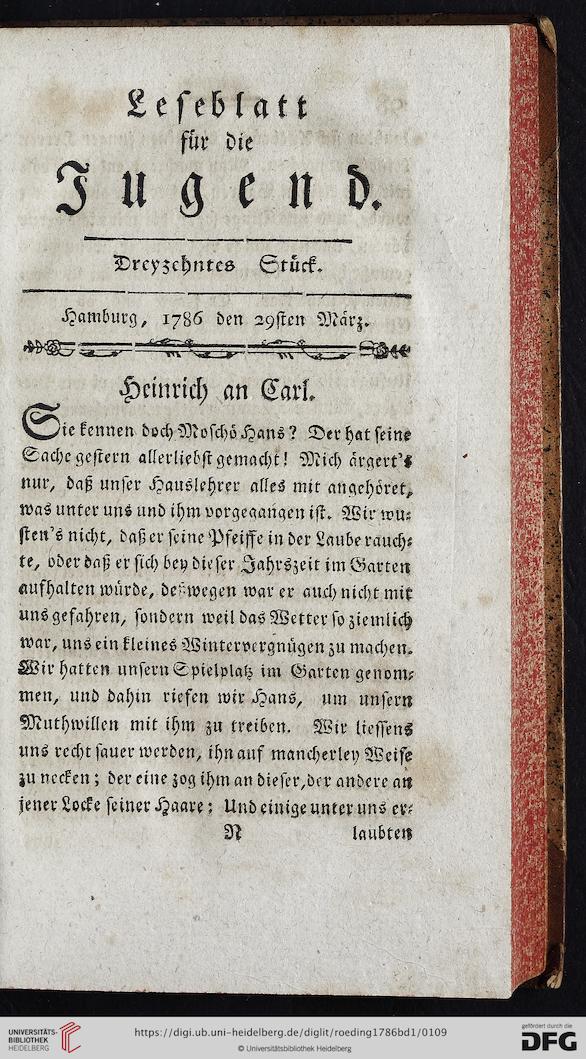 Leseblatt
für die
Jugend.
Dreyzehntes Stück.
Hamburg, 1786 den 29sten März.
Heinrich an Carl.
Sie kennen doch Moschö Hans? Der hat seine
Sache gestern allerliebst gemacht! Mich ärgert's
nur, daß unser Hauslehrer alles mit angehöret,
was unter uns und ihm vorgegangen ist. Wir wu-
sten's nicht, daß er seine Pfeiffe in der Laube rauch-
te, oder daß er sich bey dieser Jahrszeit im Garten
aufhalten würde, deßwegen war er auch nicht mit
uns gefahren, sondern weil das Wetter so ziemlich
war, uns ein kleines Wintervergnügen zu machen.
Wir hatten unsern Spielplatz im Garten genom-
men, und dahin riefen wir Hans, um unsern
Muthwillen mit ihm zu treiben. Wir liessens
uns recht sauer werden, ihn auf mancherley Weise
zu necken; der eine zog ihm an dieser, der andere an
jener Locke seiner Haare; Und einige unter uns er-
N laubten
UNIVERSITÄTS-
BIBLIOTHEK
HEIDELBERG
https://digi.ub.uni-heidelberg.de/diglit/roeding1786bd1/0109
© Universitätsbibliothek Heidelberg
gefördert durch die
DFG